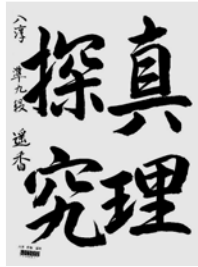 真理
探究
八淳 準九段 遥香